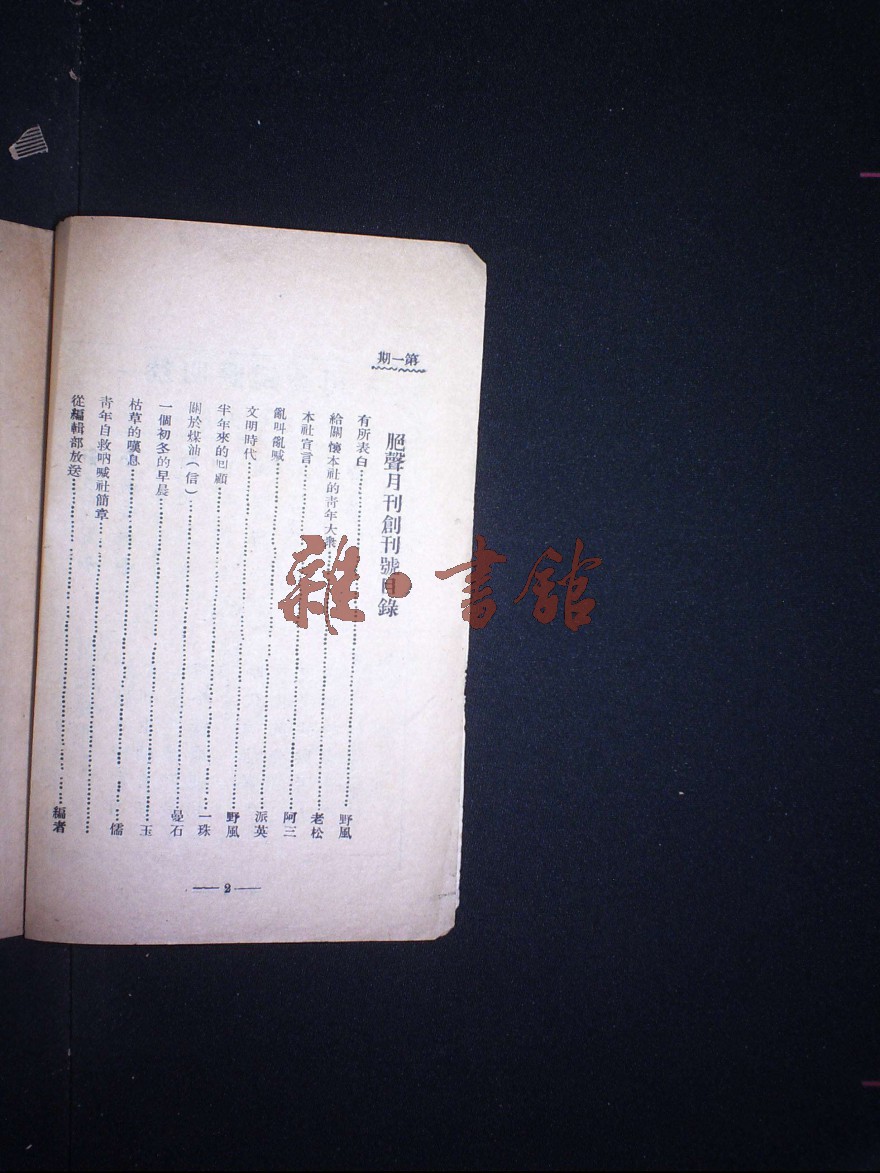 第一期
聲月刊創刊號目錄
有所表白……野風
給關懷本社的青年大衆……老松
本社宣言……阿三
亂叫亂喊……派英
文明時代……野風
半年來的回顧……一珠
關於煤油(信)……曼石
一個初冬的早晨……玉
枯草的嘆息……儒
青年自救吶喊社簡章……
從編輯部放送……編者
— 2 —
雜·書館